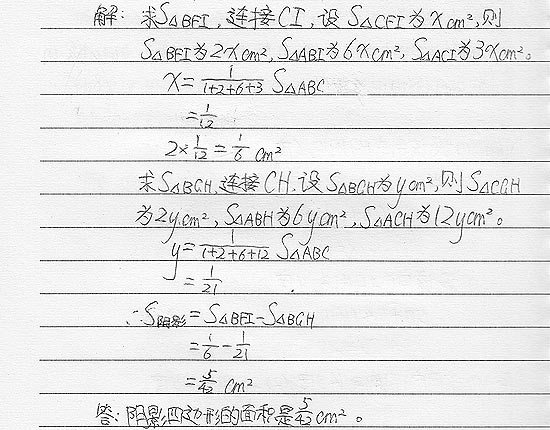 解:求S△BFI,连接CI,设S△CFI为xcm²,则
S△BFI为2xcm²,S△ABI为6xcm²,S△ACI为3xcm²。
x=1/(1+2+6+3) S△ABC
=1/12
2×1/12=1/6 cm²
求S△BGH,连接CH.设S△BGH为ycm²,则S△CGH
为2ycm²,S△ABH为6ycm²,S△ACH为12ycm²。
y=1/(1+2+6+12) S△ABC
=1/21
∴S阴影=S△BFI-S△BGH
=1/6-1/21
=5/42 cm²
答:阴影四边形的面积是5/42cm²。